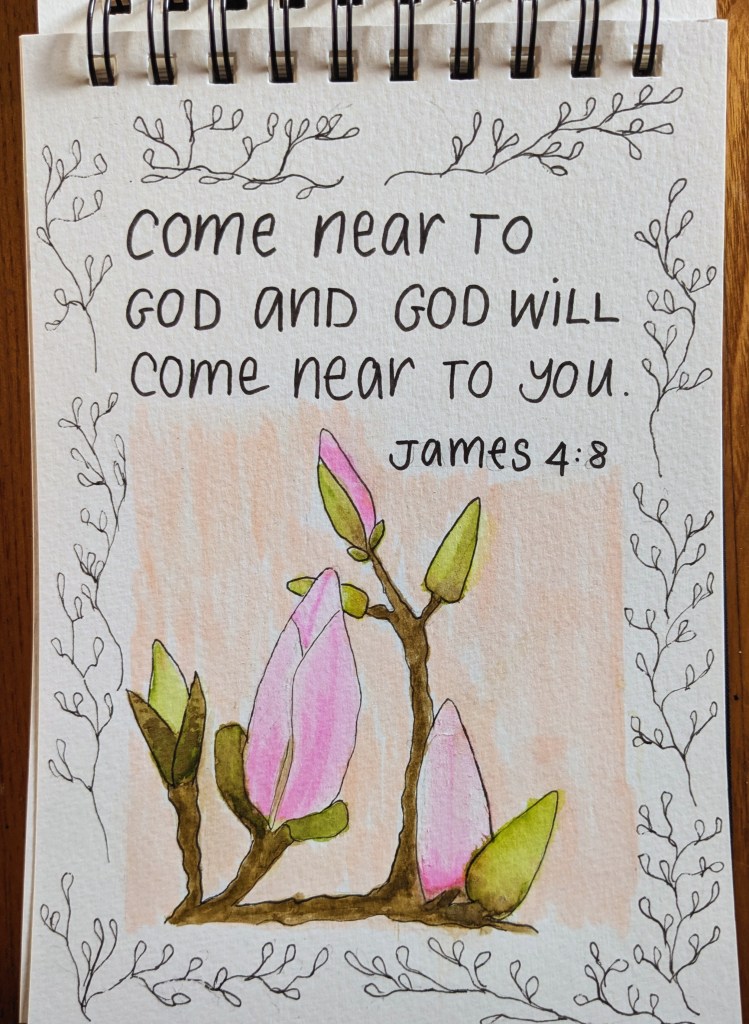 Come near to
God and God will
come near to you.
James 4:8